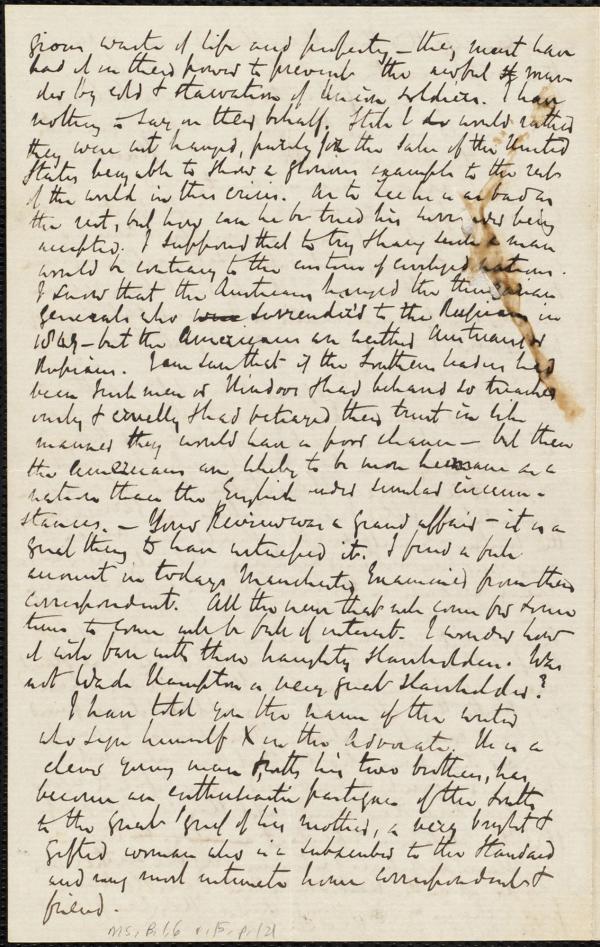 grous waste of life and property – they must have
had it in their power to prevent the awful mur-
der by cold & starvation of Union soldiers. I have
nothing to say on their behalf. Still I do would rather
they were not hanged, purely for the sake of the United
States being able to show a glorious example to the rest
of the world in this crisis. As to Lee he is as bad as
the rest, but how can he be tried his surrender being
accepted. I supposed that to try & hang such a man
would be contrary to the custom of civilized nations.
I know that the Austrians hanged the Hungarian
generals who were surrender'd to the Russians in
1849 – but the Americans are neither Austrians or
Russians. I am sure that if the Southern leaders had
been Irishmen or Hindoos & had behaved so treacher
ously & cruelly & had betrayed their trust in like
manner they would have a poor chance – but then
the Americans are likely to be more humane as a
nation than the English under similar circum-
stances. – Your Review was a grand affair – it is a
great thing to have witnessed it. I find a full
account in todays Manchester Examiner from their
correspondent. All the news that will come for some
time to come will be full of interest. I wonder how
it will be with those haughty slaveholders. Was
not Wade Hampton a very great slaveholder?
I have told you the name of the writer
who signs himself X in the Advocate. He is a
clever young man & with his two brothers, has
become an enthusiastic partizan of the South
to the great grief of his mother, a very bright &
gifted woman who is a subscriber to the Standard
and my most intimate home correspondent &
friend.
MS. B.1.6 v.15, p.121